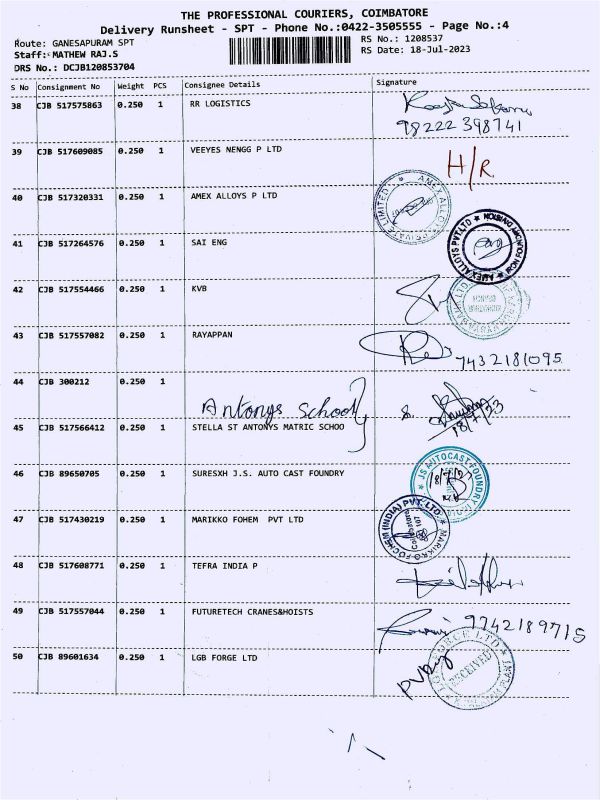 THE PROFESSIONAL COURIERS, COIMBATORE
Delivery Runsheet - SPT - Phone No.:0422-3505555 - Page No.:4
Route: GANESAPURAM SPT RS No.: 1208537
Staff: MATHEW RAJ.S RS Date: 18-Jul-2023
DRS No.: DCJB120853704
S No Consignment No Weight PCS Consignee Details Signature
38 CJB 517575863 0.250 1 RR LOGISTICS
98222 398741
39 CJB 517609085 0.250 1 VEEYES NENGG P LTD H/R
40 CJB 517320331 0.250 1 AMEX ALLOYS P LTD
AMEX ALLOYS PRIVATE LIMITED
41 CJB 517264576 0.250 1 SAI ENG
AMEX ALLOYS PVT.LTD
42 CJB 517554466 0.250 1 KVB
43 CJB 517557082 0.250 1 RAYAPPAN
7432181095
44 CJB 300212 0.250 1
Antonys School
18/7/23
45 CJB 517566412 0.250 1 STELLA ST ANTONYS MATRIC SCHOO
46 CJB 89650705 0.250 1 SURESXH J.S. AUTO CAST FOUNDRY
JS AUTOCAST FOUNDRY
47 CJB 517430219 0.250 1 MARIKKO FOHEM PVT LTD
MARIKKO FOCHEM (INDIA) PVT. LTD.
48 CJB 517608771 0.250 1 TEFRA INDIA P
49 CJB 517557044 0.250 1 FUTURETECH CRANES&HOISTS
9742189715
50 CJB 89601634 0.250 1 LGB FORGE LTD
RECEIVED